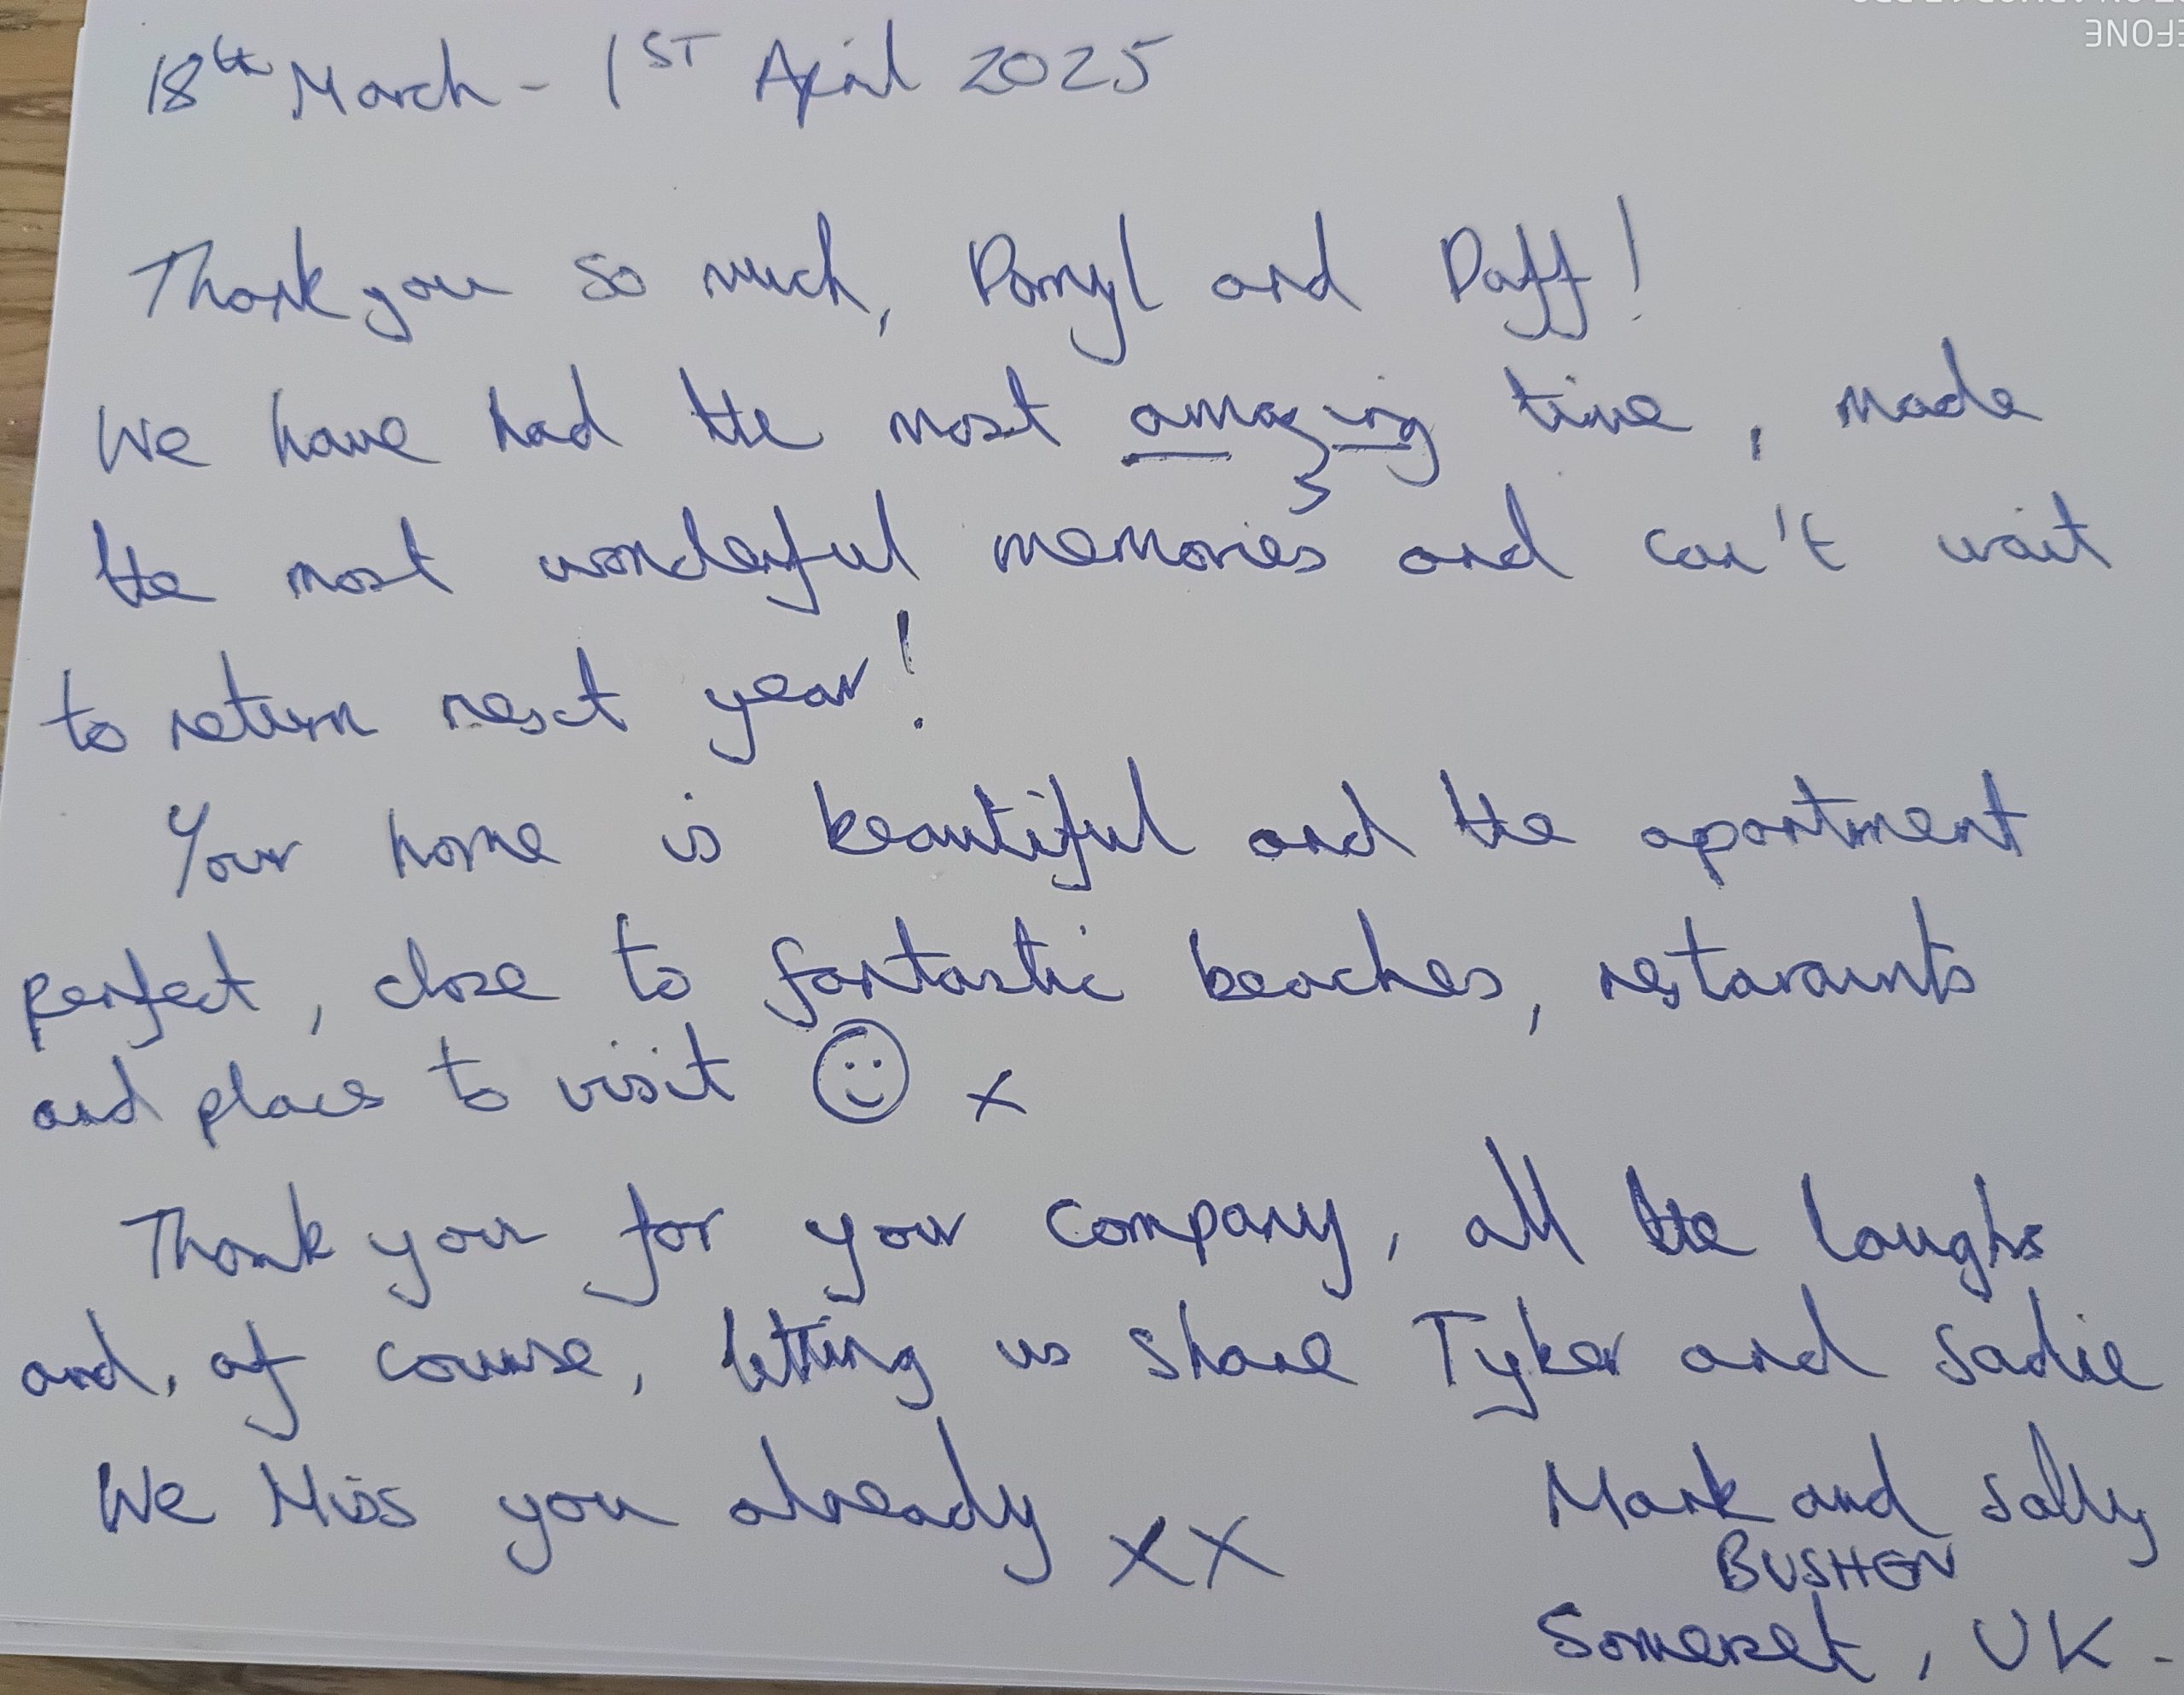 18th March - 1ST April 2025
Thank you so much, Darryl and Daff!
We have had the most amazing time, made
the most wonderful memories and can't wait
to return next year!
Your home is beautiful and the apartment
perfect, close to fantastic beaches, restaraunts
and places to visit ☺ x
Thank you for your company, all the laughs
and, of course, letting us share Tyker and Sadie
We Miss you already xx
Mark and Sally
BUSHEN
Somerset, UK.